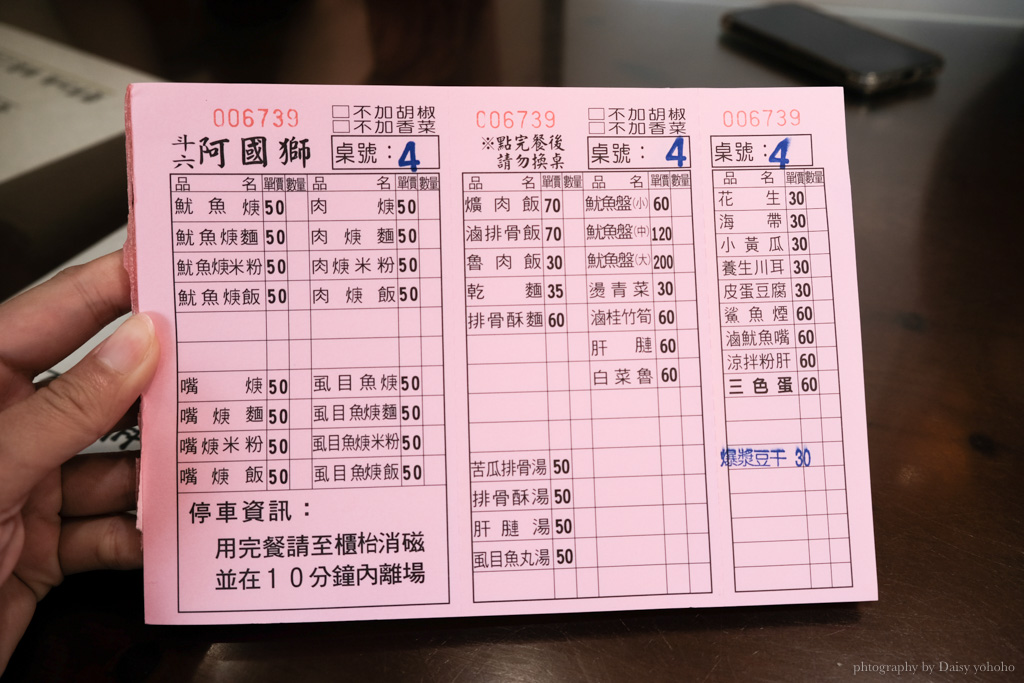 006739
□不加胡椒
□不加香菜
斗六阿國獅
桌號：4
品名 單價 數量 品名 單價 數量
魷魚焿 50 肉焿 50
魷魚焿麵 50 肉焿麵 50
魷魚焿米粉 50 肉焿米粉 50
魷魚焿飯 50 肉焿飯 50
嘴焿 50 虱目魚焿 50
嘴焿麵 50 虱目魚焿麵 50
嘴焿米粉 50 虱目魚焿米粉 50
嘴焿飯 50 虱目魚焿飯 50
停車資訊：
用完餐請至櫃枱消磁
並在１０分鐘內離場
006739
□不加胡椒
□不加香菜
※點完餐後
請勿換桌
桌號：4
品名 單價 數量 品名 單價 數量
爌肉飯 70 魷魚盤(小) 60
滷排骨飯 70 魷魚盤(中) 120
魯肉飯 30 魷魚盤(大) 200
乾麵 35 燙青菜 30
排骨酥麵 60 滷桂竹筍 60
肝膤 60
白菜魯 60
苦瓜排骨湯 50
排骨酥湯 50
肝膤湯 50
虱目魚丸湯 50
006739
桌號：4
品名 單價 數量
花生 30
海帶 30
小黃瓜 30
養生川耳 30
皮蛋豆腐 30
鯊魚煙 60
滷魷魚嘴 60
涼拌粉肝 60
三色蛋 60
爆漿豆干 30
phtography by Daisy yohoho